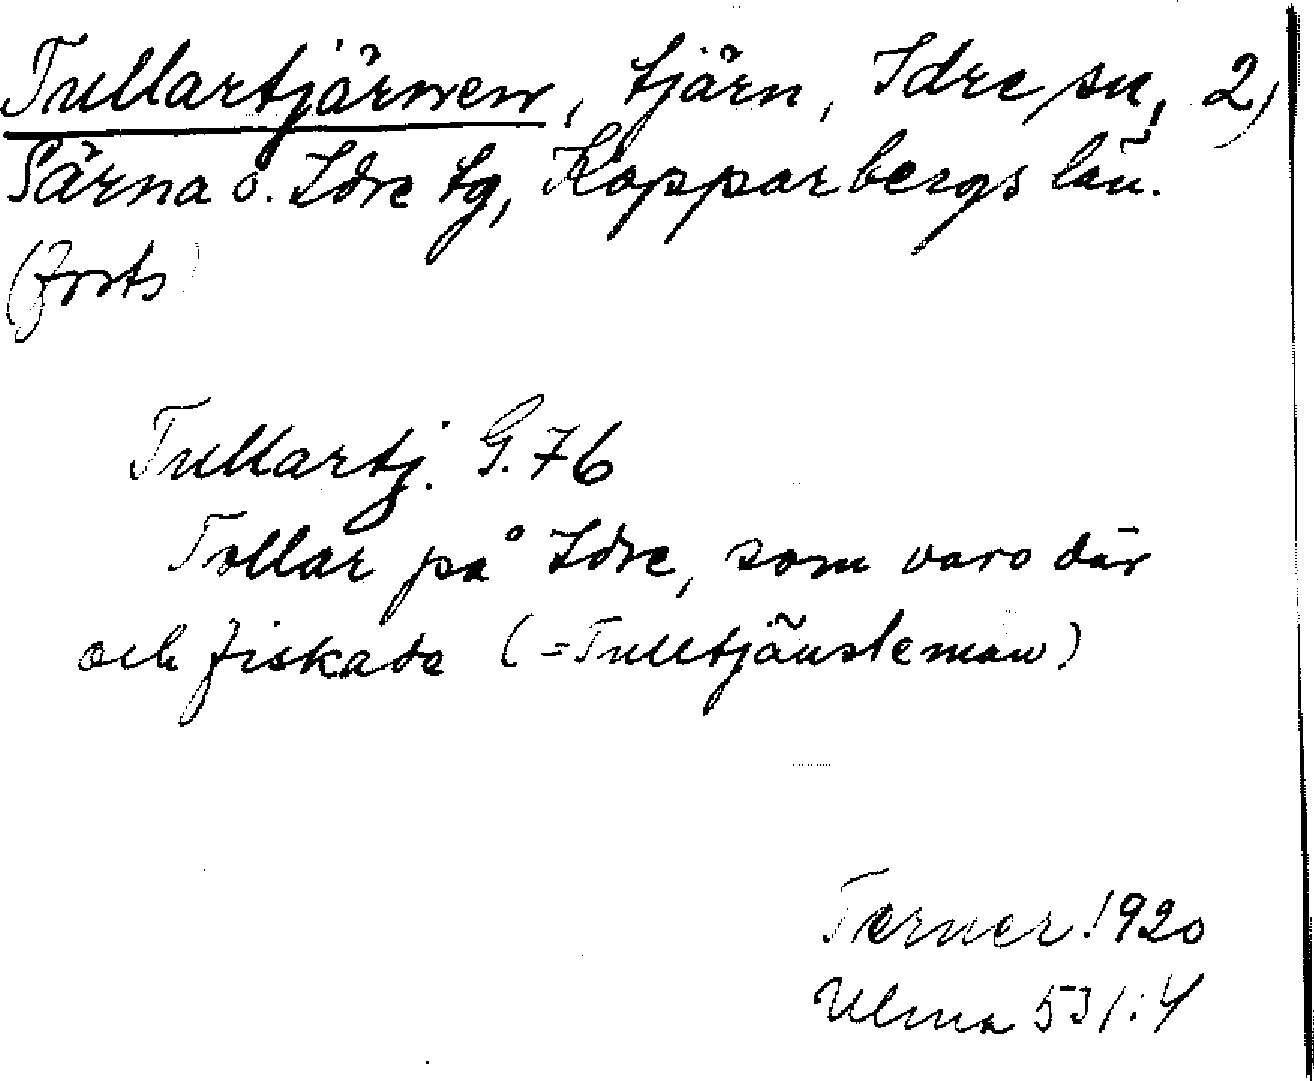 Tullartjärnen, tjärn, Idre sn, 2)
Särna o. Idre tg, Kopparbergs län.
(forts)
Tullartj. G. 76
Tollar på Idre, som varo där
och fiskade (=Tulltjänsteman)
Terner 1920
Ulma 531:4